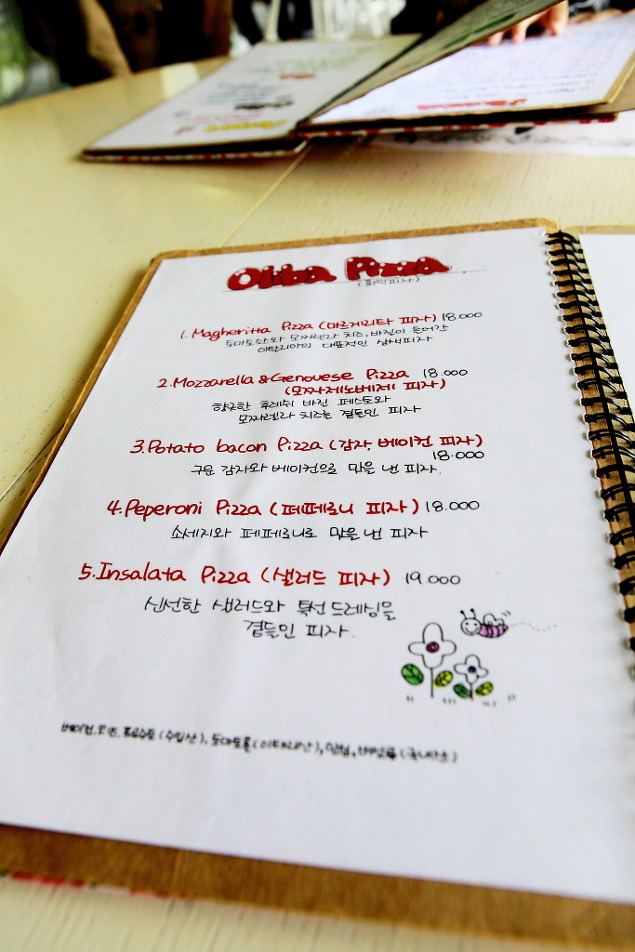 Oliba Pizza
(화덕피자)
1. Magheritta Pizza (마르게리타 피자) 18.000
토마토소스와 모짜렐라 치즈, 바질이 들어간
이탈리아의 대표적인 피자
2. Mozzarella & Genovese Pizza 18.000
(모짜제노베제 피자)
향긋한 바질 페스토와
모짜렐라 치즈를 곁들인 피자
3. Potato bacon Pizza (감자, 베이컨 피자)
18.000
구운 감자와 베이컨으로 맛을 낸 피자.
4. Peperoni Pizza (페페로니 피자) 18.000
소세지와 페페로니로 맛을 낸 피자
5. Insalata Pizza (샐러드 피자) 19.000
신선한 샐러드와 특선 드레싱을
곁들인 피자.
(수입산), (국내산)